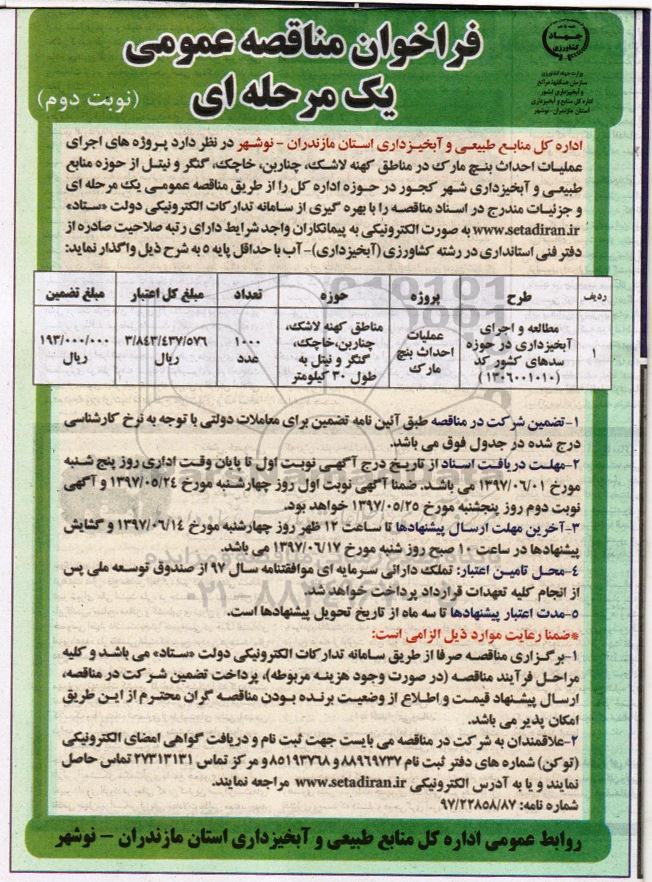 فراخوان مناقصه عمومی
یک مرحله ای
(نوبت دوم)
جهاد
کشاورزی
وزارت جهاد کشاورزی
سازمان جنگلها، مراتع
و آبخیزداری کشور
اداره کل منابع طبیعی و آبخیزداری
استان مازندران - نوشهر
اداره کل منابع طبیعی و آبخیزداری استان مازندران - نوشهر در نظر دارد پروژه های اجرای
عملیات احداث بنچ مارک در مناطق کهنه لاشک، چنارین، خاچک، گنگر و نیتل از حوزه منابع
طبیعی و آبخیزداری شهر کجور در حوزه اداره کل را از طریق مناقصه عمومی یک مرحله ای
و جزئیات مندرج در اسناد مناقصه را با بهره گیری از سامانه تدارکات الکترونیکی دولت «ستاد»
www.setadiran.ir به صورت الکترونیکی به پیمانکاران واجد شرایط دارای رتبه صلاحیت صادره از
دفتر فنی استانداری در رشته کشاورزی (آبخیزداری)- آب با حداقل پایه ۵ به شرح ذیل واگذار نماید:
ردیف طرح پروژه حوزه تعداد مبلغ کل اعتبار مبلغ تضمین
۱ مطالعه و اجرای آبخیزداری در حوزه سدهای کشور کد (۱۳۰۶۰۰۱۰۱۰) عملیات احداث بنچ مارک مناطق کهنه لاشک، چنارین، خاچک، گنگر و نیتل به طول ۳۰ کیلومتر ۱۰۰۰ عدد ۳/۸۴۳/۴۳۷/۵۷۶ ریال ۱۹۳/۰۰۰/۰۰۰ ریال
۱-تضمین شرکت در مناقصه طبق آئین نامه تضمین برای معاملات دولتی با توجه به نرخ کارشناسی
درج شده در جدول فوق می باشد.
۲-مهلت دریافت اسناد از تاریخ درج آگهی نوبت اول تا پایان وقت اداری روز پنج شنبه
مورخ ۱۳۹۷/۰۶/۰۱ می باشد. ضمنا آگهی نوبت اول روز چهارشنبه مورخ ۱۳۹۷/۰۵/۲۴ و آگهی
نوبت دوم روز پنجشنبه مورخ ۱۳۹۷/۰۵/۲۵ خواهد بود.
۳-آخرین مهلت ارسال پیشنهادها تا ساعت ۱۲ ظهر روز چهارشنبه مورخ ۱۳۹۷/۰۶/۱۴ و گشایش
پیشنهادها در ساعت ۱۰ صبح روز شنبه مورخ ۱۳۹۷/۰۶/۱۷ می باشد.
۴-محل تامین اعتبار: تملک دارائی سرمایه ای موافقتنامه سال ۹۷ از صندوق توسعه ملی پس
از انجام کلیه تعهدات قرارداد پرداخت خواهد شد.
۵-مدت اعتبار پیشنهادها تا سه ماه از تاریخ تحویل پیشنهادها است.
*ضمنا رعایت موارد ذیل الزامی است:
۱-برگزاری مناقصه صرفا از طریق سامانه تدارکات الکترونیکی دولت «ستاد» می باشد و کلیه
مراحل فرآیند مناقصه (در صورت وجود هزینه مربوطه)، پرداخت تضمین شرکت در مناقصه،
ارسال پیشنهاد قیمت و اطلاع از وضعیت برنده بودن مناقصه گران محترم از این طریق
امکان پذیر می باشد.
۲-علاقمندان به شرکت در مناقصه می بایست جهت ثبت نام و دریافت گواهی امضای الکترونیکی
(توکن) شماره های دفتر ثبت نام ۸۸۹۶۹۷۳۷ و ۸۵۱۹۳۷۶۸ و مرکز تماس ۲۷۳۱۳۱۳۱ تماس حاصل
نمایند و یا به آدرس الکترونیکی www.setadiran.ir مراجعه نمایند.
شماره نامه: ۹۷/۲۲۸۵۸/۸۷
روابط عمومی اداره کل منابع طبیعی و آبخیزداری استان مازندران - نوشهر